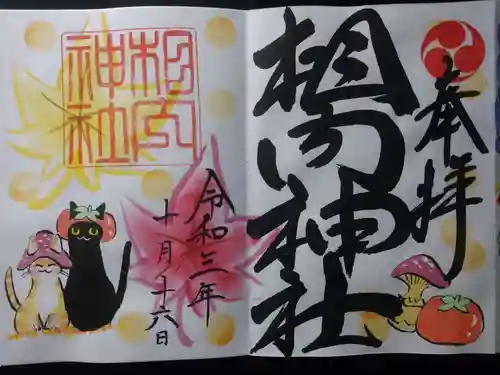 奉拝
相内神社
相内
神社
令和三年
十月十六日